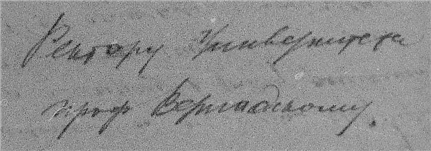 Ректору Университета
проф Вернадскому.